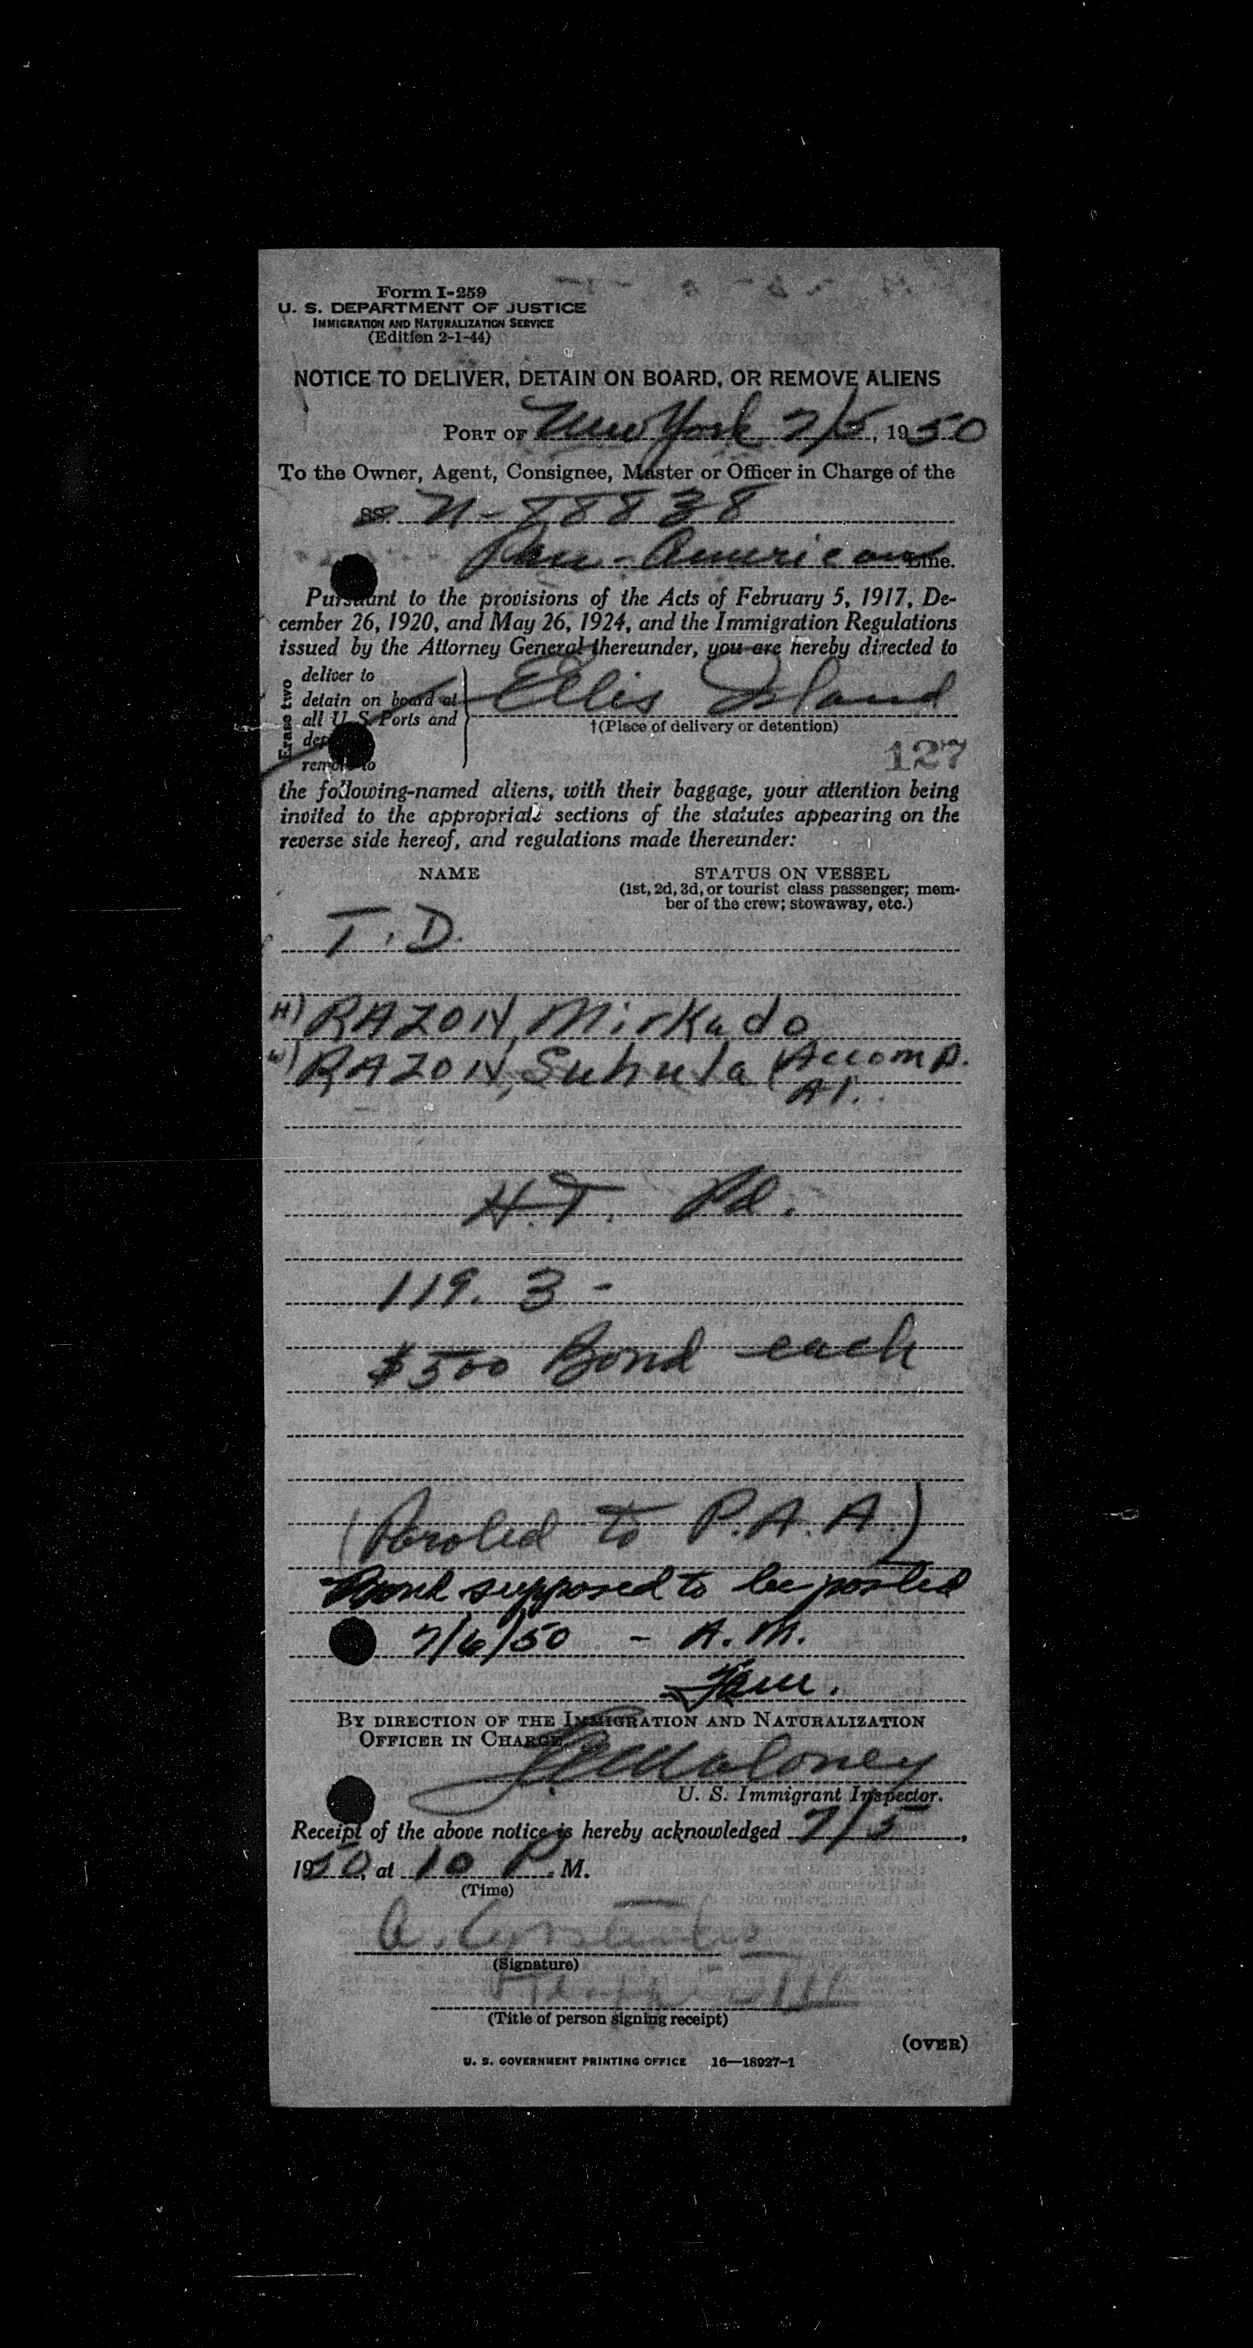 Form I-259
U. S. DEPARTMENT OF JUSTICE
IMMIGRATION AND NATURALIZATION SERVICE
(Edition 2-1-44)
NOTICE TO DELIVER, DETAIN ON BOARD, OR REMOVE ALIENS
PORT OF New York 7/5, 1950
To the Owner, Agent, Consignee, Master or Officer in Charge of the
SS. N-88838
Pan-American Line.
Pursuant to the provisions of the Acts of February 5, 1917, De-
cember 26, 1920, and May 26, 1924, and the Immigration Regulations
issued by the Attorney General thereunder, you are hereby directed to
Erase two
deliver to
detain on board at
all U. S. Ports and
remove to
Ellis Island
†(Place of delivery or detention)
127
the following-named aliens, with their baggage, your attention being
invited to the appropriate sections of the statutes appearing on the
reverse side hereof, and regulations made thereunder:
NAME STATUS ON VESSEL
(1st, 2d, 3d, or tourist class passenger; mem-
ber of the crew; stowaway, etc.)
T. D.
H) RAZON, Mirkado
W) RAZON, Suhula (Accomp.
Al.
H.T. Pd.
119. 3 -
$500 Bond each
(Paroled to P.A.A.)
Bond supposed to be posted
7/6/50 - A.M.
BY DIRECTION OF THE IMMIGRATION AND NATURALIZATION
OFFICER IN CHARGE
Maloney
U. S. Immigrant Inspector.
Receipt of the above notice is hereby acknowledged 7/5,
1950, at 10 P. M.
(Time)
A.
(Signature)
(Title of person signing receipt)
(OVER)
U. S. GOVERNMENT PRINTING OFFICE 16—18927-1